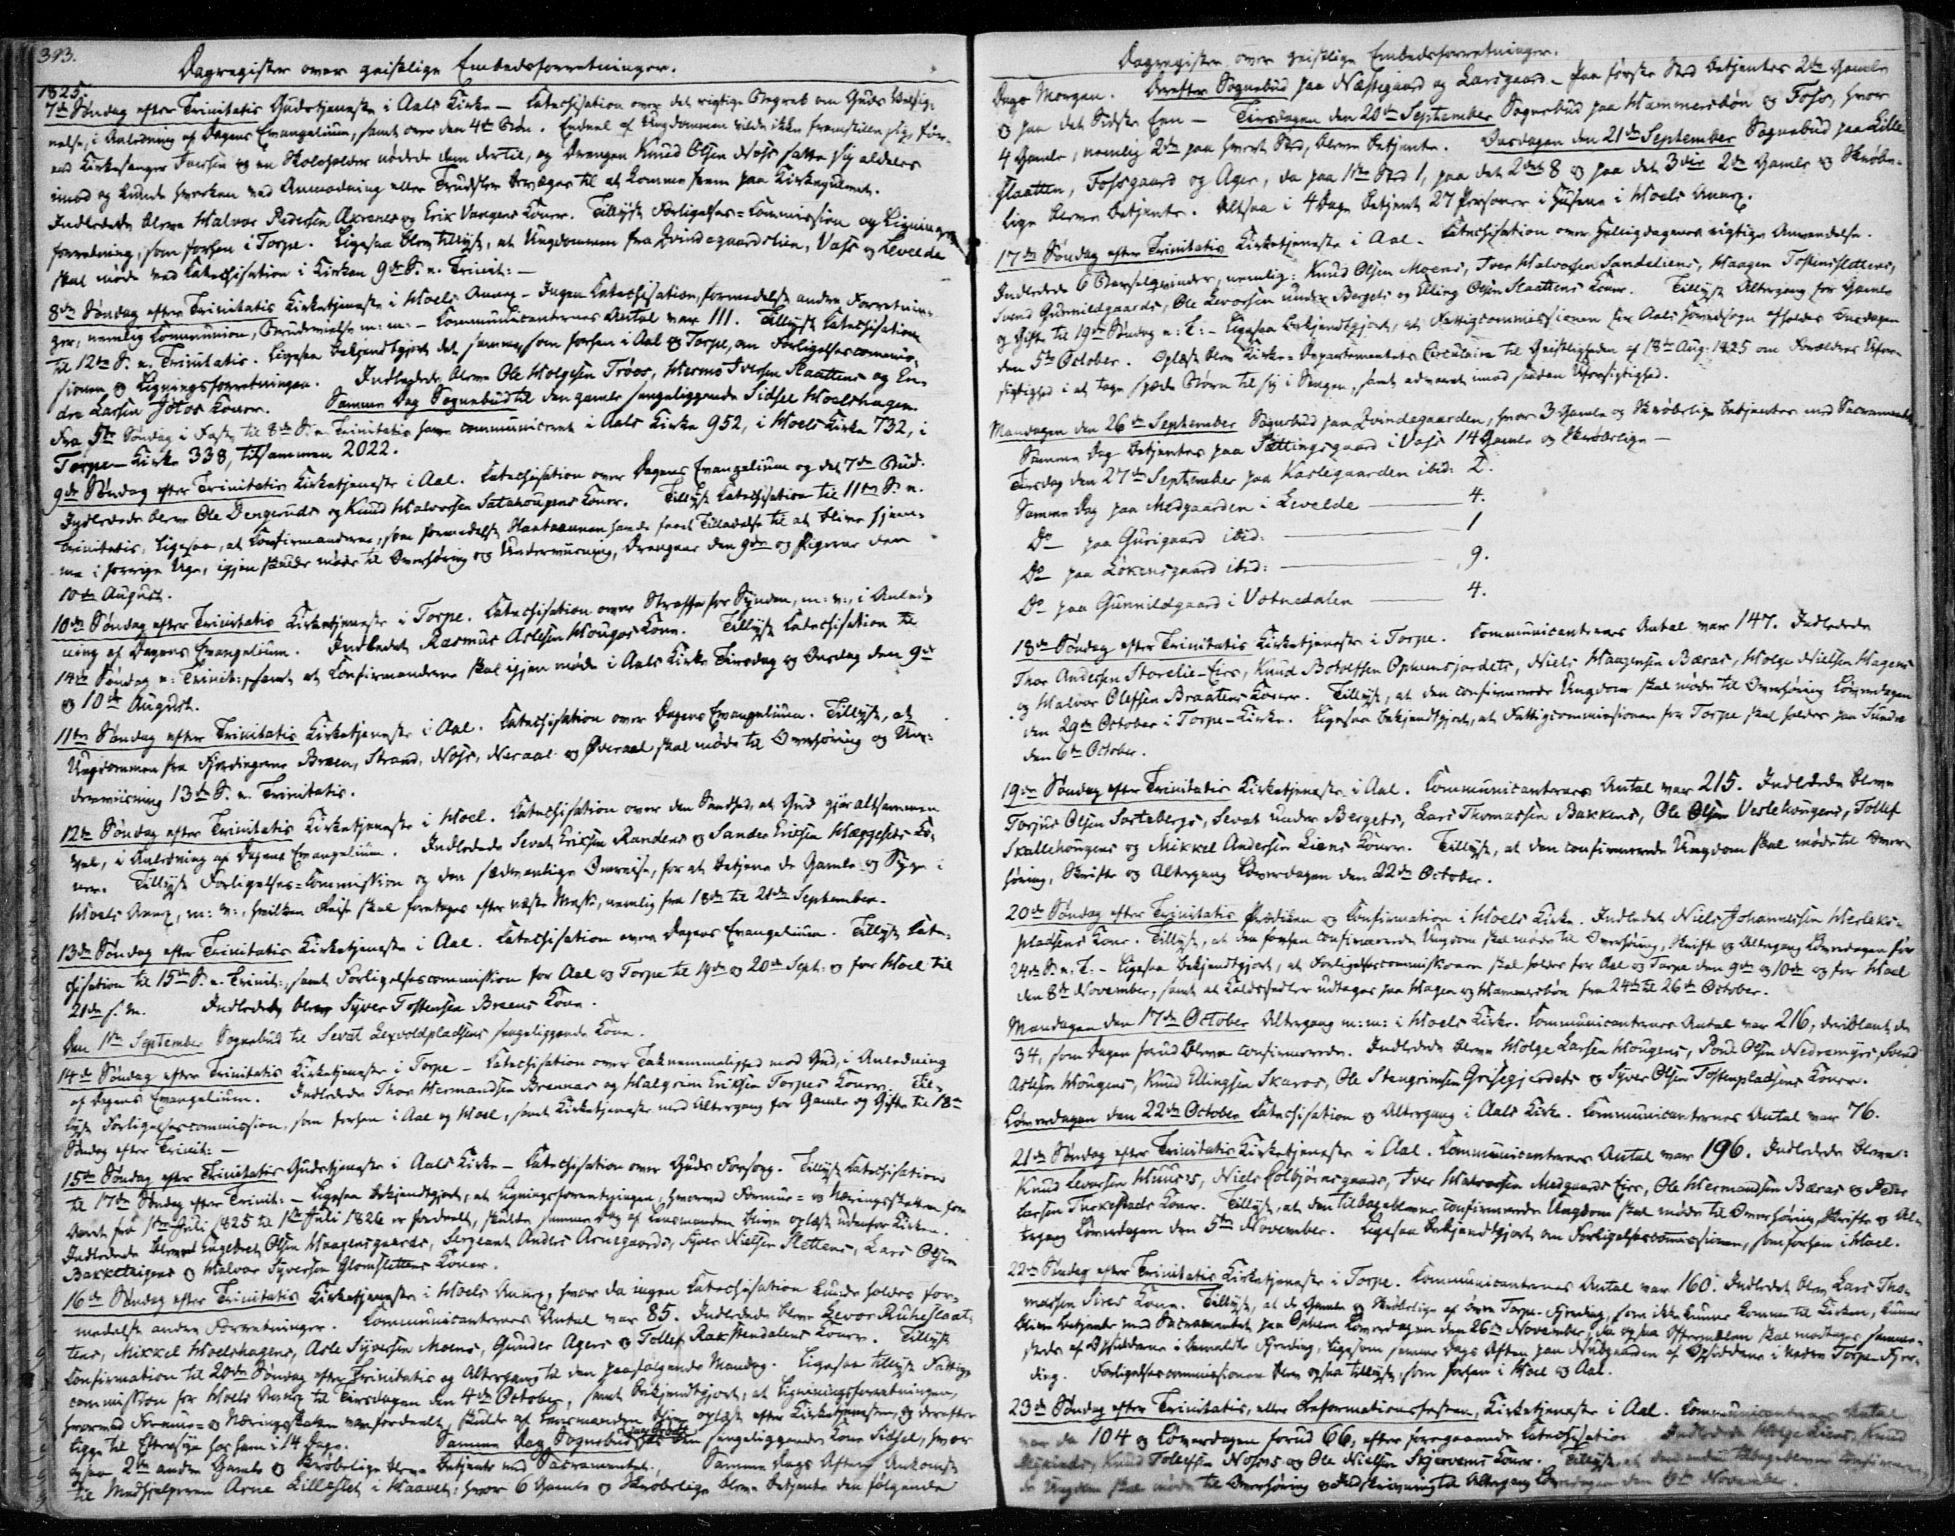 393.
Dagregister over geistlige Embedsforretninger.
1825.
7de Søndag efter Trinitatis Gudstjeneste i Aals Kirke – Catechisation over det rigtige Begreb om Guds Velsig-
nelse, i Anledning af Dagens Evangelium, samt over den 4de Bøn. Endeel af Ungdommen vilde ikke fremstille sig, før-
end Kirkesanger og en Skoleholder nødede dem dertil, og Drengen Knud Olsen Noss satte sig aldeles
imod og kunde hverken ved Anmodning eller Trudsler bevæges til at komme frem paa Kirkegulvet.
Indledede bleve Halvor Pedersen Axrenes og Erik Vangens Koner. Tillyst Forligelses-Commission og Lignings-
forretning, som forhen i Torpe. Ligesaa blev tillyst, at Ungdommen fra Qvindegaardslien, Vats og Levelde
skal møde ved Catechisation i Kirken 9de S. e. Trinit: –
8de Søndag efter Trinitatis Kirketjeneste i Hoels Annex – Ingen Catechisation, formedelst andre Forretnin-
ger, nemlig Communion, Brudevielse m: m: – Communicanternes Antal var 111. Tillyst Catechisation
til 12te S. e. Trinitatis. Ligesaa bekjendtgjort det samme, som forhen i Aal og Torpe, om Forligelsescommis-
sionen og Ligningsforretningen. Indledede bleve Ole Holgesen Trøos, Hermo Iversen Slaattens og En-
dre Larsen Jotos Koner. Samme Dag Sognebud til den gamle sengeliggende Sidsel Hoelshagen.
Fra 5te Søndag i Faste til 8de S. e. Trinitatis have communiceret i Aals Kirke 952, i Hoels Kirke 732, i
Torpe-Kirke 338, tilsammen 2022.
9de Søndag efter Trinitatis Kirketjeneste i Aal. Catechisation over Dagens Evangelium og det 7de Bud.
Indledede bleve Ole Dengeruds og Knud Halvorsen Satahougens Koner. Tillyst Catechisation til 11te S. e.
Trinitatis, ligesaa, at Confirmanderne, som formedelst Slaataannen havde faaet Tilladelse til at blive hjem-
me i forrige Uge, igjen skulde møde til Overhøring og Underviisning, Drengene den 9de og Pigerne den
10de August.
10de Søndag efter Trinitatis Kirketjeneste i Torpe. Catechisation over Straffe for Synden, m: v:, i Anled-
ning af Dagens Evangelium. Indledet Rasmus Aslesen Hougos Kone. Tillyst Catechisation til
14de Søndag e: Trinit:, samt at Confirmanderne skal igjen møde i Aals Kirke Tirsdag og Onsdag den 9de
og 10de August.
11te Søndag efter Trinitatis Kirketjeneste i Aal. Catechisation over Dagens Evangelium. Tillyst, at
Ungdommen fra Fjerdingerne Breen, Strand, Noss, Neraal og Øveraal skal møde til Overhøring og Un-
derviisning 13de S. e. Trinitatis.
12te Søndag efter Trinitatis Kirketjeneste i Hoel. Catechisation over den Sandhed, at Gud gjør altsammen
vel, i Anledning af Dagens Evangelium. Indledede Sevat Eriksen Randens og Sander Eriksen Hæggesets Ko-
ner. Tillyst Forligelses-Commission og den sædvanlige Omreise, for at betjene de Gamle og Syge i
Hoels Annex, m: v:, hvilken Reise skal foretages efter næste Messe, nemlig fra 18de til 21de September.
13de Søndag efter Trinitatis Kirketjeneste i Aal. Catechisation over Dagens Evangelium. Tillyst Cate-
chisation til 15de S. e. Trinit:, samt Forligelsescommission for Aal og Torpe til 19de og 20de Sept: og for Hoel til
21de s. M. Indledet blev Syver Tostensen Breens Kone.
Den 1ste September Sognebud til Sevat Lexvoldpladsens sengeliggende Kone.
14de Søndag efter Trinitatis Kirketjeneste i Torpe – Catechisation over Taknemmelighed mod Gud, i Anledning
af Dagens Evangelium. Indledede Thor Hermandsen Brennas og Halgrim Eriksen Torpes Koner. Til-
lyst Forligelsescommission, som forhen i Aal og Hoel, samt Kirketjeneste med Altergang for Gamle og Gifte til 18de
Søndag efter Trinit: –
15de Søndag efter Trinitatis Gudstjeneste i Aals Kirke – Catechisation over Guds Forsorg. Tillyst Catechisation
til 17de Søndag efter Trinit: – Ligesaa bekjendtgjort, at Ligningsforretningen, hvorved Formue- og Næringsskatten for
Aaret fra 1ste Juli 1825 til 1ste Juli 1826 er fordeelt, skulde samme Dag af Lensmanden blive oplæst udenfor Kirken.
Indledede bleve Engebret Olsen Haagensgaards, Sergeant Anders Arnegaards, Syver Nielsen Slettens, Lars Olsen
Bakketeigens og Halvor Syversen Glomslettens Koner.
16de Søndag efter Trinitatis Kirketjeneste i Hoels Annex, hvor da ingen Catechisation kunde holdes for-
medelst anden Forretninger. Communicanternes Antal var 85. Indledede bleve Levor Ruheslaat-
tens, Mikkel Hoelshagens, Asle Syversen Moens, Gunder Agers og Tollef Rakstendalens Koner. Tillyst
Confirmation til 20de Søndag efter Trinitatis og Altergang til den paafølgende Mandag. Ligesaa tillyst Fattig-
commission for Hoels Annex til Tirsdagen den 4de October, samt bekjendtgjort, at Ligningsforretningen,
hvorved Formue- og Næringsskatten var fordeelt, skulde af Lensmanden blive oplæst efter Kirketjenesten, og derefter
ligge til Eftersyn hos ham i 14 Dage. Samme Dag Sognebud til den sengeliggende Kone Sidsel, hvor
ogsaa 2de andre Gamle og Skrøbelige bleve betjente med Sacramentet. Samme Dags Aften Ankomst
til Medhjelperen Arne Lilleslet i Haavet, hvor 6 Gamle og Skrøbelige bleve betjente den følgende
Dagregister over geistlige Embedsforretninger.
Dags Morgen. Derefter Sognebud paa Næstegaard og Larsgaard – Paa første Sted betjentes 2de Gamle
og paa det Sidste Een – Tirsdagen den 20de September Sognebud paa Hammersbøn og Foss, hvor
4 Gamle, nemlig 2de paa hvert Sted, bleve betjente. Onsdagen den 21de September Sognebud paa Lille-
slaatten, Fossgaard og Ager, da paa 1ste Sted 1, paa det 2det 8 og paa det 3die 2de Gamle og Skrøbe-
lige bleve betjente. Altsaa i 4 Dage betjent 27 Personer i Husene i Hoels Annex.
17de Søndag efter Trinitatis Kirketjeneste i Aal. Catechisation over Helligdagenes rigtige Anvendelse.
Indledede 6 Barselqvinder, nemlig: Knud Olsen Moens, Iver Halvorsen Sandeliens, Haagen Tostensslettens,
Svend Gunnildgaards, Ole Levorsen under Bergets og Elling Olsen Slaattens Koner. Tillyst Altergang for Gamle
og Gifte til 19de Søndag e: T: – Ligesaa bekjendtgjort, at Fattigcommissionen for Aals Hovedsogn afholdes Onsdagen
den 5te October. Oplæst blev Kirke-Departementets Circulaire til Geistligheden af 18de Aug: 1825 om Forældres Ufor-
sigtighed i at tage spæde Børn til sig i Sengen, samt advaret imod saadan Uforsigtighed.
Mandagen den 26de September Sognebud paa Qvindegaarden, hvor 3 Gamle og Skrøbelige betjentes med Sacramentet.
Samme Dag betjentes paa Sættingsgaard i Vats 14 Gamle og Skrøbelige –
Tirsdag den 27de September paa Karlsgaarden ibid: 2.
Samme Dag paa Medgaarden i Levelde – 4.
Do paa Gurigaard ibid: – 1
Do paa Løkensgaard ibid: – 9.
Do paa Gunnildgaard i Votnedalen – 4.
18de Søndag efter Trinitatis Kirketjeneste i Torpe. Communicanternes Antal var 147. Indledede
Thor Andersen Storelie-Eies, Knud Botolfsen Ophemsjordets, Niels Haagensen Bæras, Holge Nielsen Hagens
og Halvor Olefsen Braatens Koner. Tillyst, at den confirmerede Ungdom skal møde til Overhøring Løverdagen
den 29de October i Torpe-Kirke. Ligesaa bekjendtgjort, at Fattigcommissionen for Torpe skal holdes paa Sundre
den 6te October.
19de Søndag efter Trinitatis Kirketjeneste i Aal. Communicanternes Antal var 215. Indledede bleve
Torjus Olsen Sortebergs, Sevat under Bergets, Lars Thomassen Bakkens, Ole Olsen Veslehougens, Tollef
Skallehougens og Mikkel Andersen Liens Koner. Tillyst, at den confirmerede Ungdom skal møde til Over-
høring, Skrifte og Altergang Løverdagen den 22de October.
20de Søndag efter Trinitatis Prædiken og Confirmation i Hoels Kirke. Indledet Niels Johannessen Herleks-
pladsens Kone. Tillyst, at den forhen confirmerede Ungdom skal møde til Overhøring, Skrifte og Altergang Løverdagen før
24de S. e. T. – Ligesaa bekjendtgjort, at Forligelsescommissionen skal holdes for Aal og Torpe den 9de og 10de og for Hoel
den 8de November, samt at Kaldssedler udtages paa Hagen og Hammersbøn fra 24de til 26de October.
Mandagen den 17de October Altergang m: m: i Hoels Kirke. Communicanternes Antal var 216, deriblant de
34, som Dagen forud bleve confirmerede. Indledede bleve Holge Larsen Hougens, Povel Olsen Nedremyrs, Svend
Aslesen Hougens, Knud Ellingsen Skaros, Ole Stengrimsen Grisegjerdets og Syver Olsen Tostenpladsens Koner.
Løverdagen den 22de October Catechisation og Altergang i Aals Kirke. Communicanternes Antal var 76.
21de Søndag efter Trinitatis Kirketjeneste i Aal. Communicanternes Antal var 196. Indledede bleve:
Knud Levorsen Huuses, Niels Colbjørnsgaards, Iver Halvorsen Medgaards Eies, Ole Hermandsen Bæras og Peder
Larsen Koner. Tillyst, at den tilbageblevne confirmerede Ungdom skal møde til Overhøring, Skrifte og Al-
tergang Løverdagen den 5te November. Ligesaa bekjendtgjort om Forligelsescommissionen, som forhen i Hoel.
22de Søndag efter Trinitatis Kirketjeneste i Torpe. Communicanternes Antal var 160. Indledet blev Lars Tho-
massen Sires Kone. Tillyst, at de Gamle og Skrøbelige af øvre Torpe-Fjerding, som ikke kunne komme til Kirken, kunne
blive betjente med Sacramentet paa Ophem Løverdagen den 26de November, da ogsaa Offermelen skal modtages samme-
steds af Opsidderne i bemeldte Fjerding, ligesom samme Dags Aften paa Nubgaarden af Opsidderne i nedre Torpe-Fjer-
ding. Forligelsescommissionen blev ogsaa tillyst, som forhen i Hoel og Aal.
23de Søndag efter Trinitatis, eller Reformationsfesten, Kirketjeneste i Aal. Communicanternes Antal
var da 104 og Løverdagen forud 66, efter foregaaende Catechisation. Indledede Holge Liens, Knud
Knud Tollefsen Nosses og Ole Nielsen Skjervens Koner. Tillyst, at den endnu tilbageblevne confirmere-
de Ungdom skal møde til Overhøring og Indskrivning til Altergang Løverdagen den November.